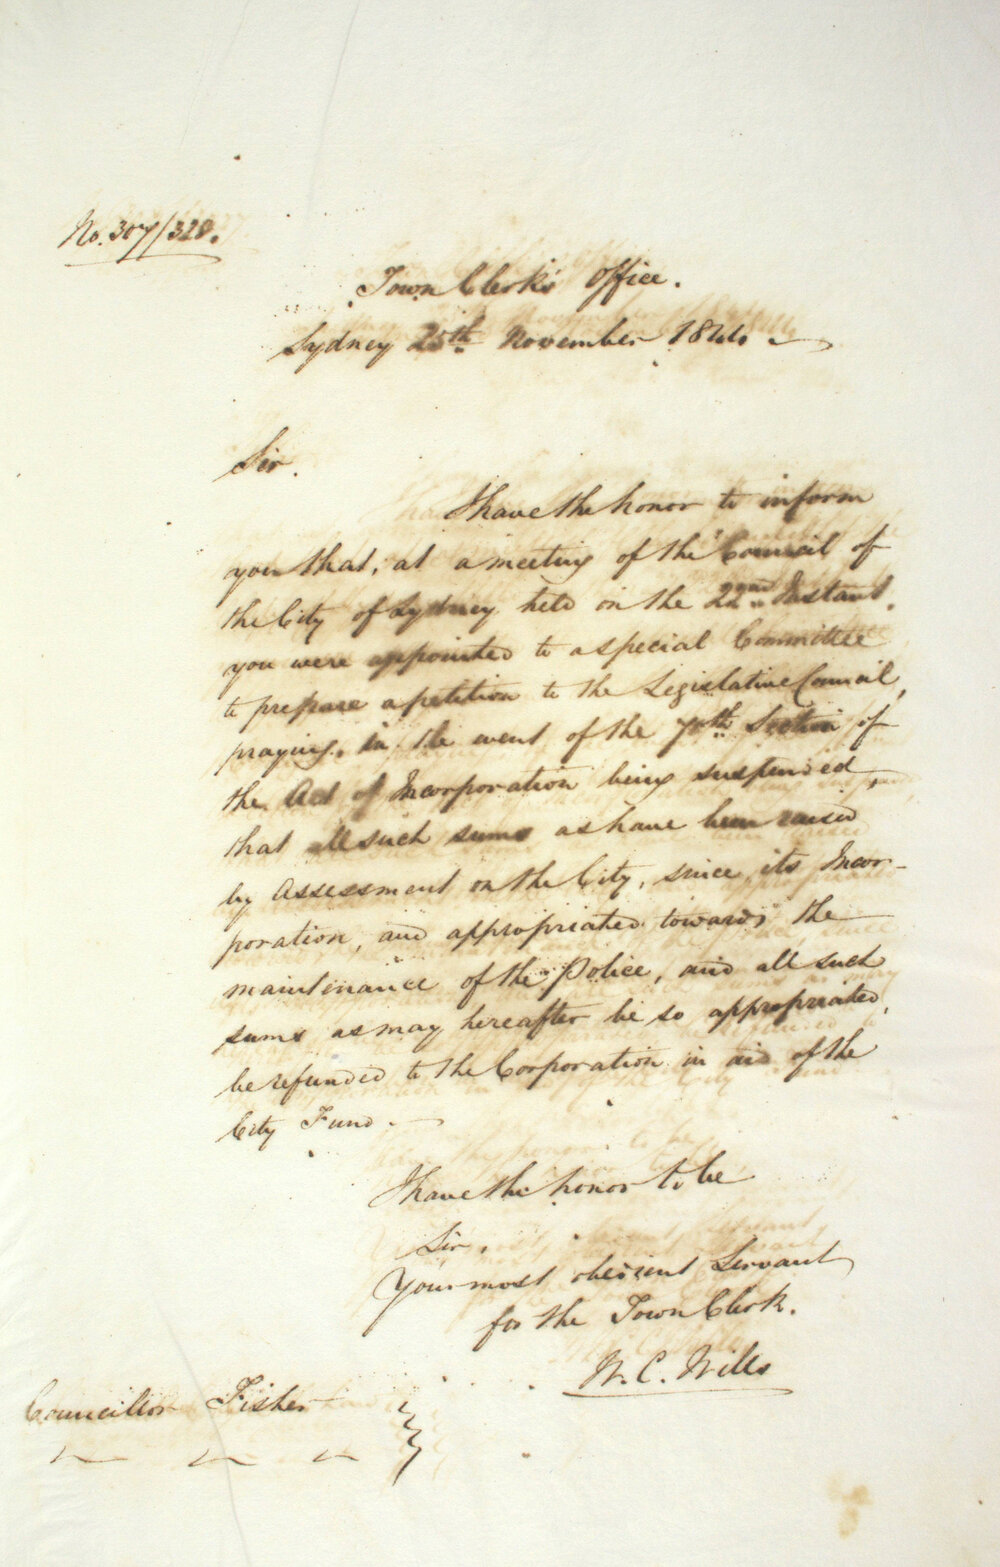 No. 307/328.
Town Clerk's Office.
Sydney 25th November 1844.
Sir.
I have the honor to inform
you that, at a meeting of the Council of
the City of Sydney held on the 22nd Instant,
you were appointed to a special Committee
to prepare a petition to the Legislative Council,
praying, in the event of the 70th Section of
the Act of Incorporation being suspended,
that all such sums as have been raised
by Assessment on the City, since its Incor-
poration, and appropriated towards the
maintenance of the Police, and all such
sums as may hereafter be so appropriated,
be refunded to the Corporation in aid of the
City Fund.
I have the honor to be
Sir,
Your most obedient Servant
for the Town Clerk.
W. C. Wills
Councillor Fisher